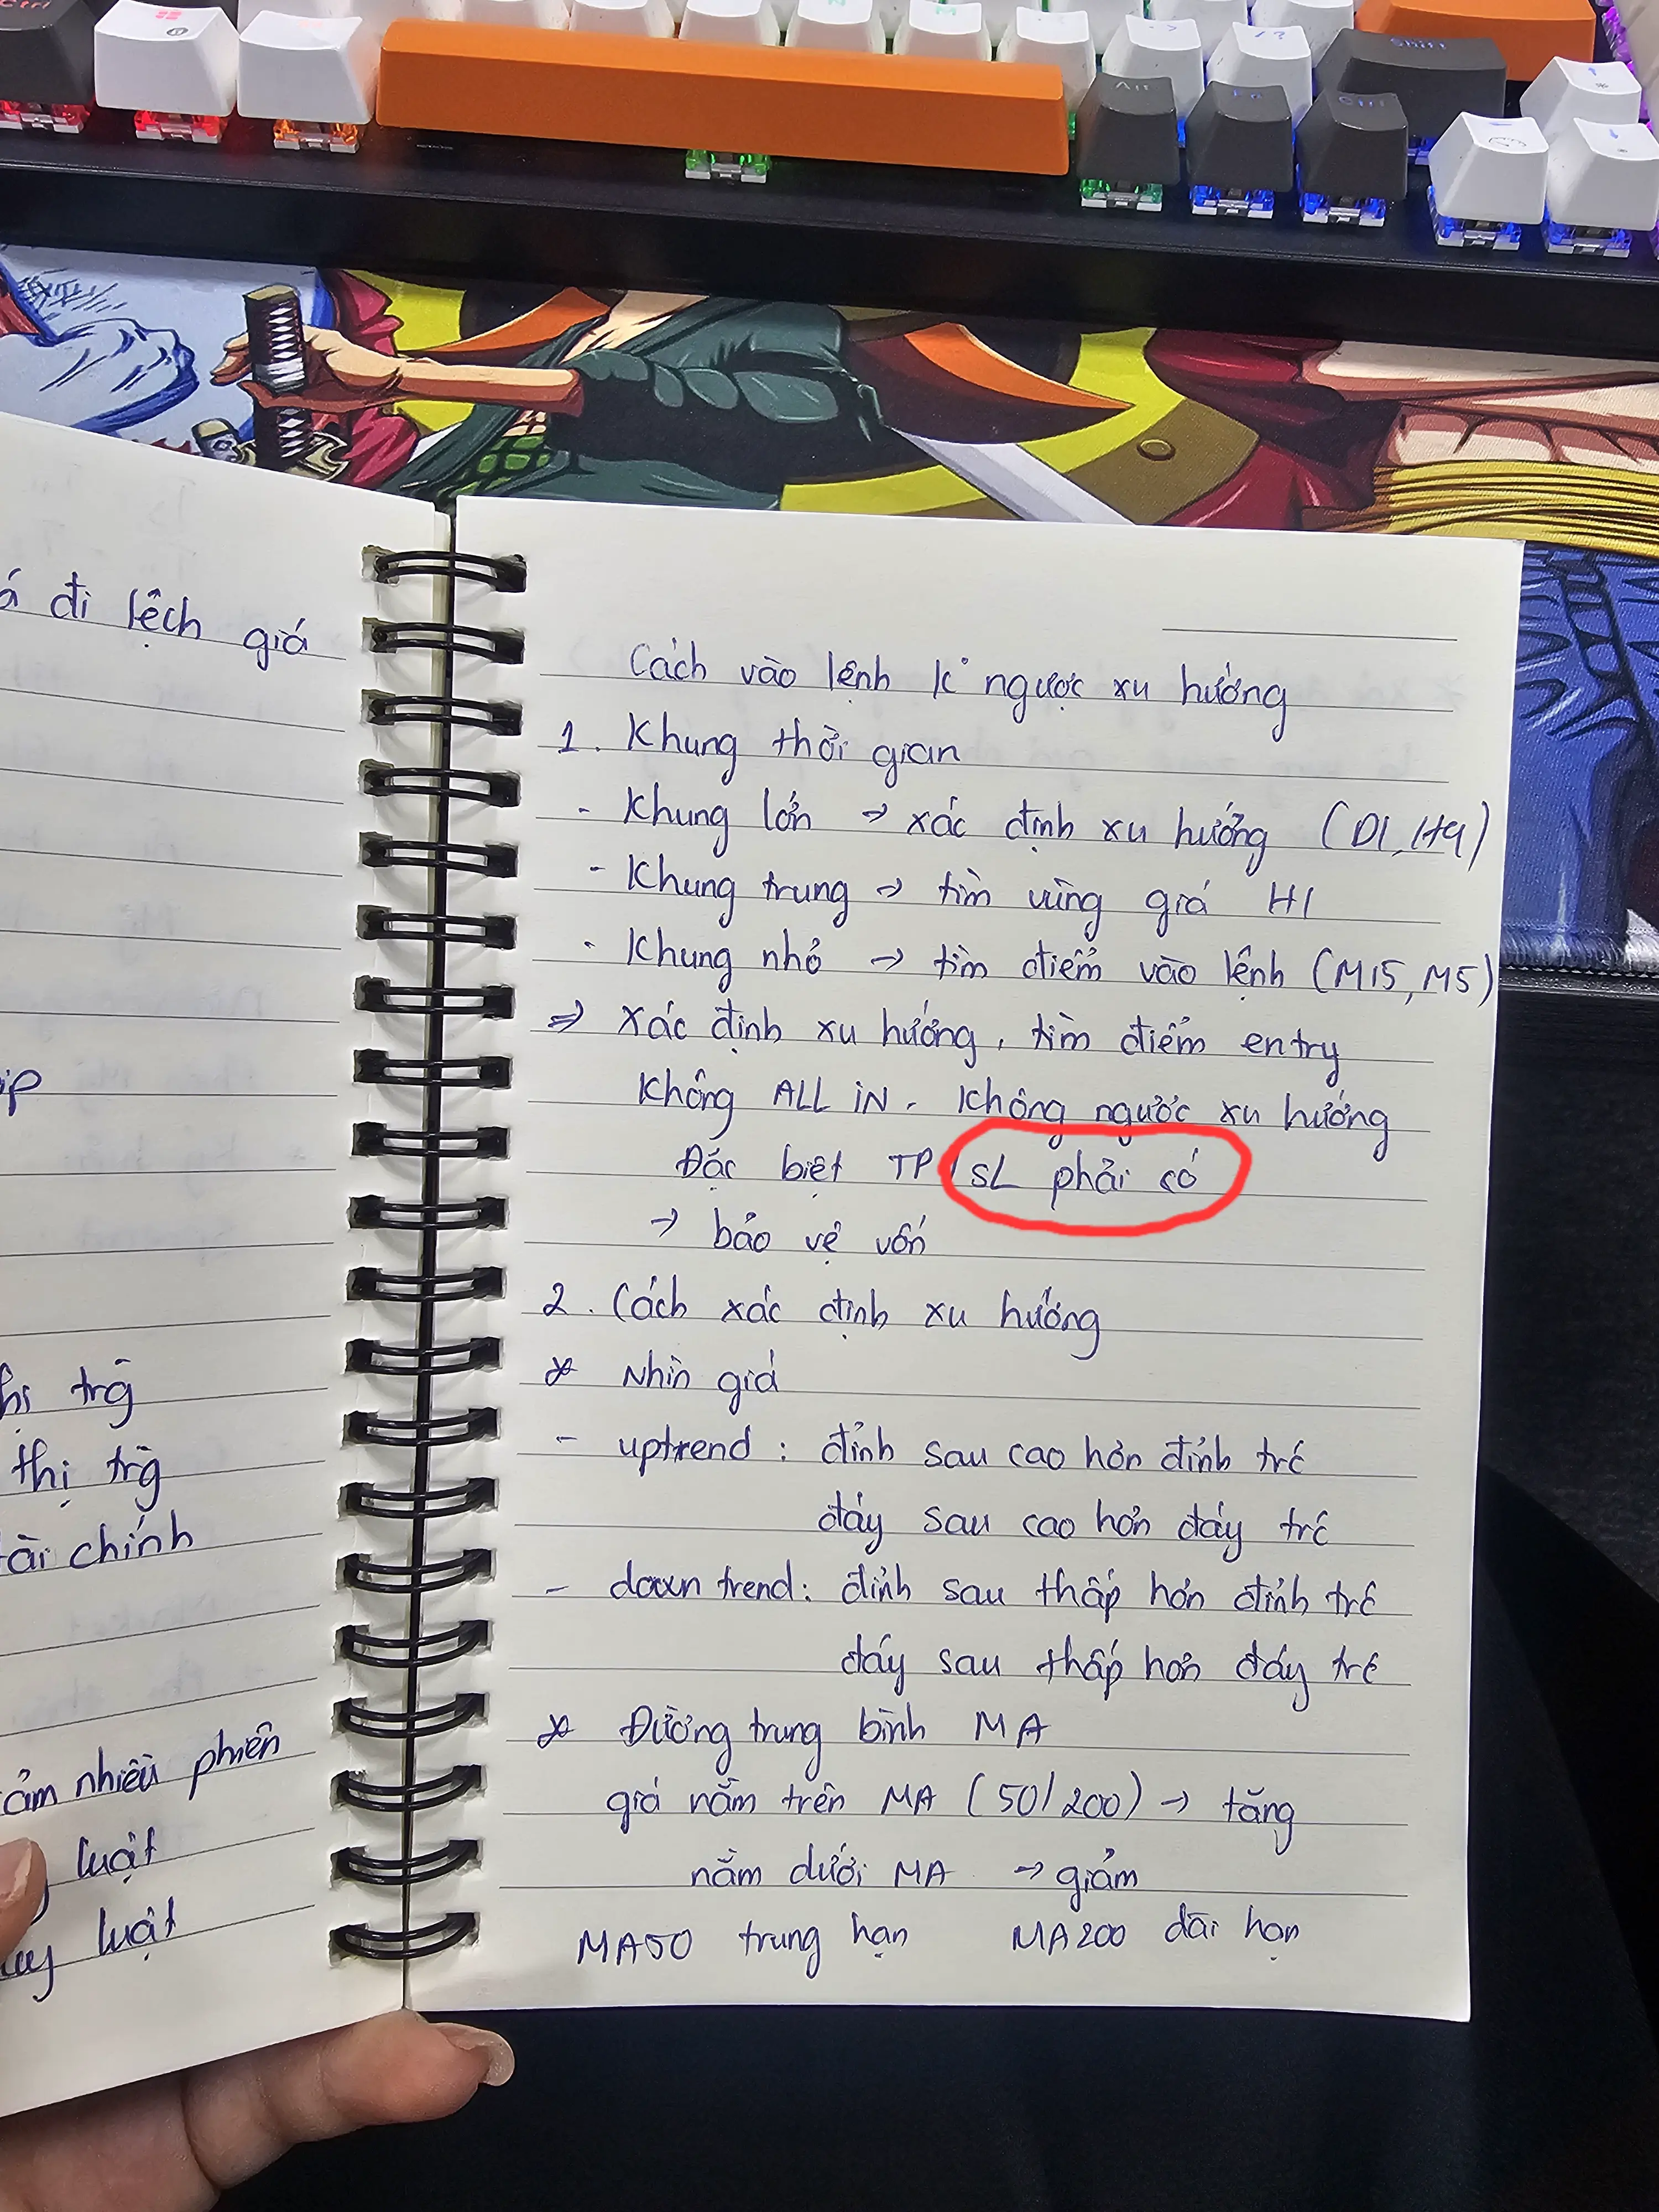 đi lệch giá
thị trg
tài chính
nhiều phiên
luật
luật
Cách vào lệnh k ngược xu hướng
1. Khung thời gian
- Khung lớn → xác định xu hướng (D1, H4)
- Khung trung → tìm vùng giá H1
- Khung nhỏ → tìm điểm vào lệnh (M15, M5)
⇒ xác định xu hướng, tìm điểm entry
Không ALL iN. Không ngược xu hướng
Đặc biệt TP/SL phải có
→ bảo vệ vốn
2. Cách xác định xu hướng
* Nhìn giá
- uptrend : đỉnh sau cao hơn đỉnh trc
đáy sau cao hơn đáy trc
- down trend: đỉnh sau thấp hơn đỉnh trc
đáy sau thấp hơn đáy trc
* Đường trung bình MA
giá nằm trên MA (50/200) → tăng
nằm dưới MA → giảm
MA50 trung hạn MA200 dài hạn